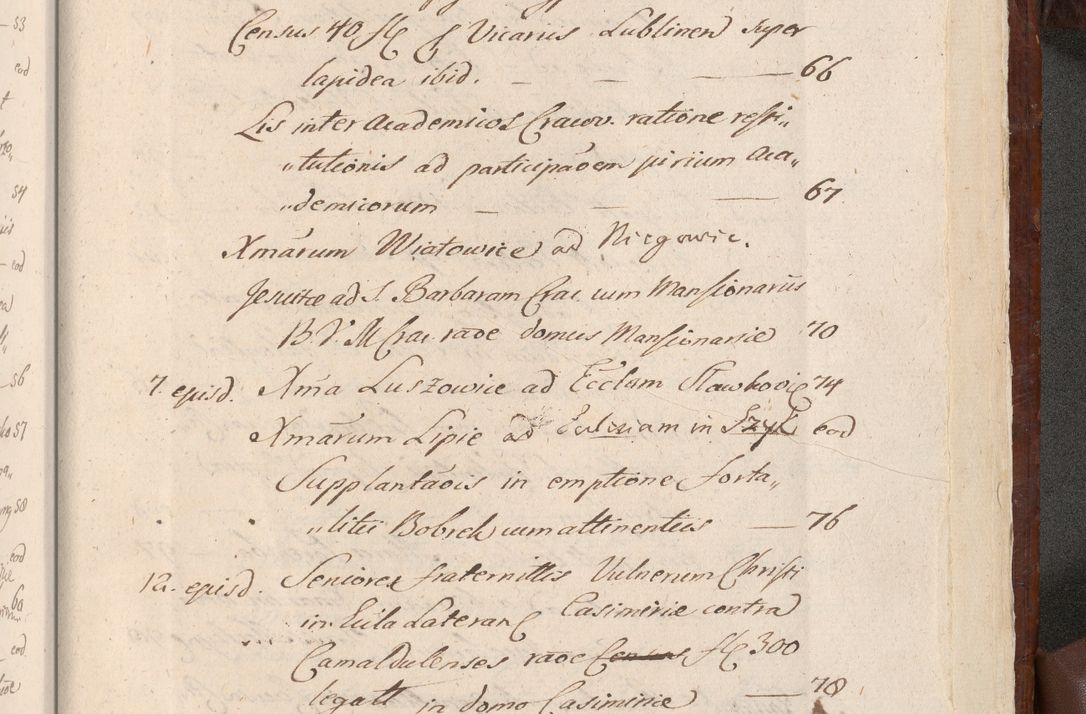 Census 40 fl. p Vicarius Lublinen super
lapidea ibid. — — — 66
Lis inter Academicos Cracov. ratione resti„
„tutionis ad participãoem pirium Aca„
„demicorum — — — 67
Xmarum Wiatowice ad Niegowic.
Jesuitæ ad S. Barbaram Crac. cum Mansionariis
B. V. M. Crac. raõe domus Mansionariæ 70
7. episd. Xma Luszowice ad Ecclam Sławkovie 74
Xmarum Lipie ad Eclesiam in eod
Supplantãois in emptione forta„
„litii Bobrek cum attinentiis — 76
12. episd. Seniores fraternittis Vulnerum Christi
in Lateran Casimiriæ contra
Camaldulenses raõe Census fl. 300
legatt in domo Casimiriæ — 78
53
eod
54
eod
56
57
58
eod
60
eod